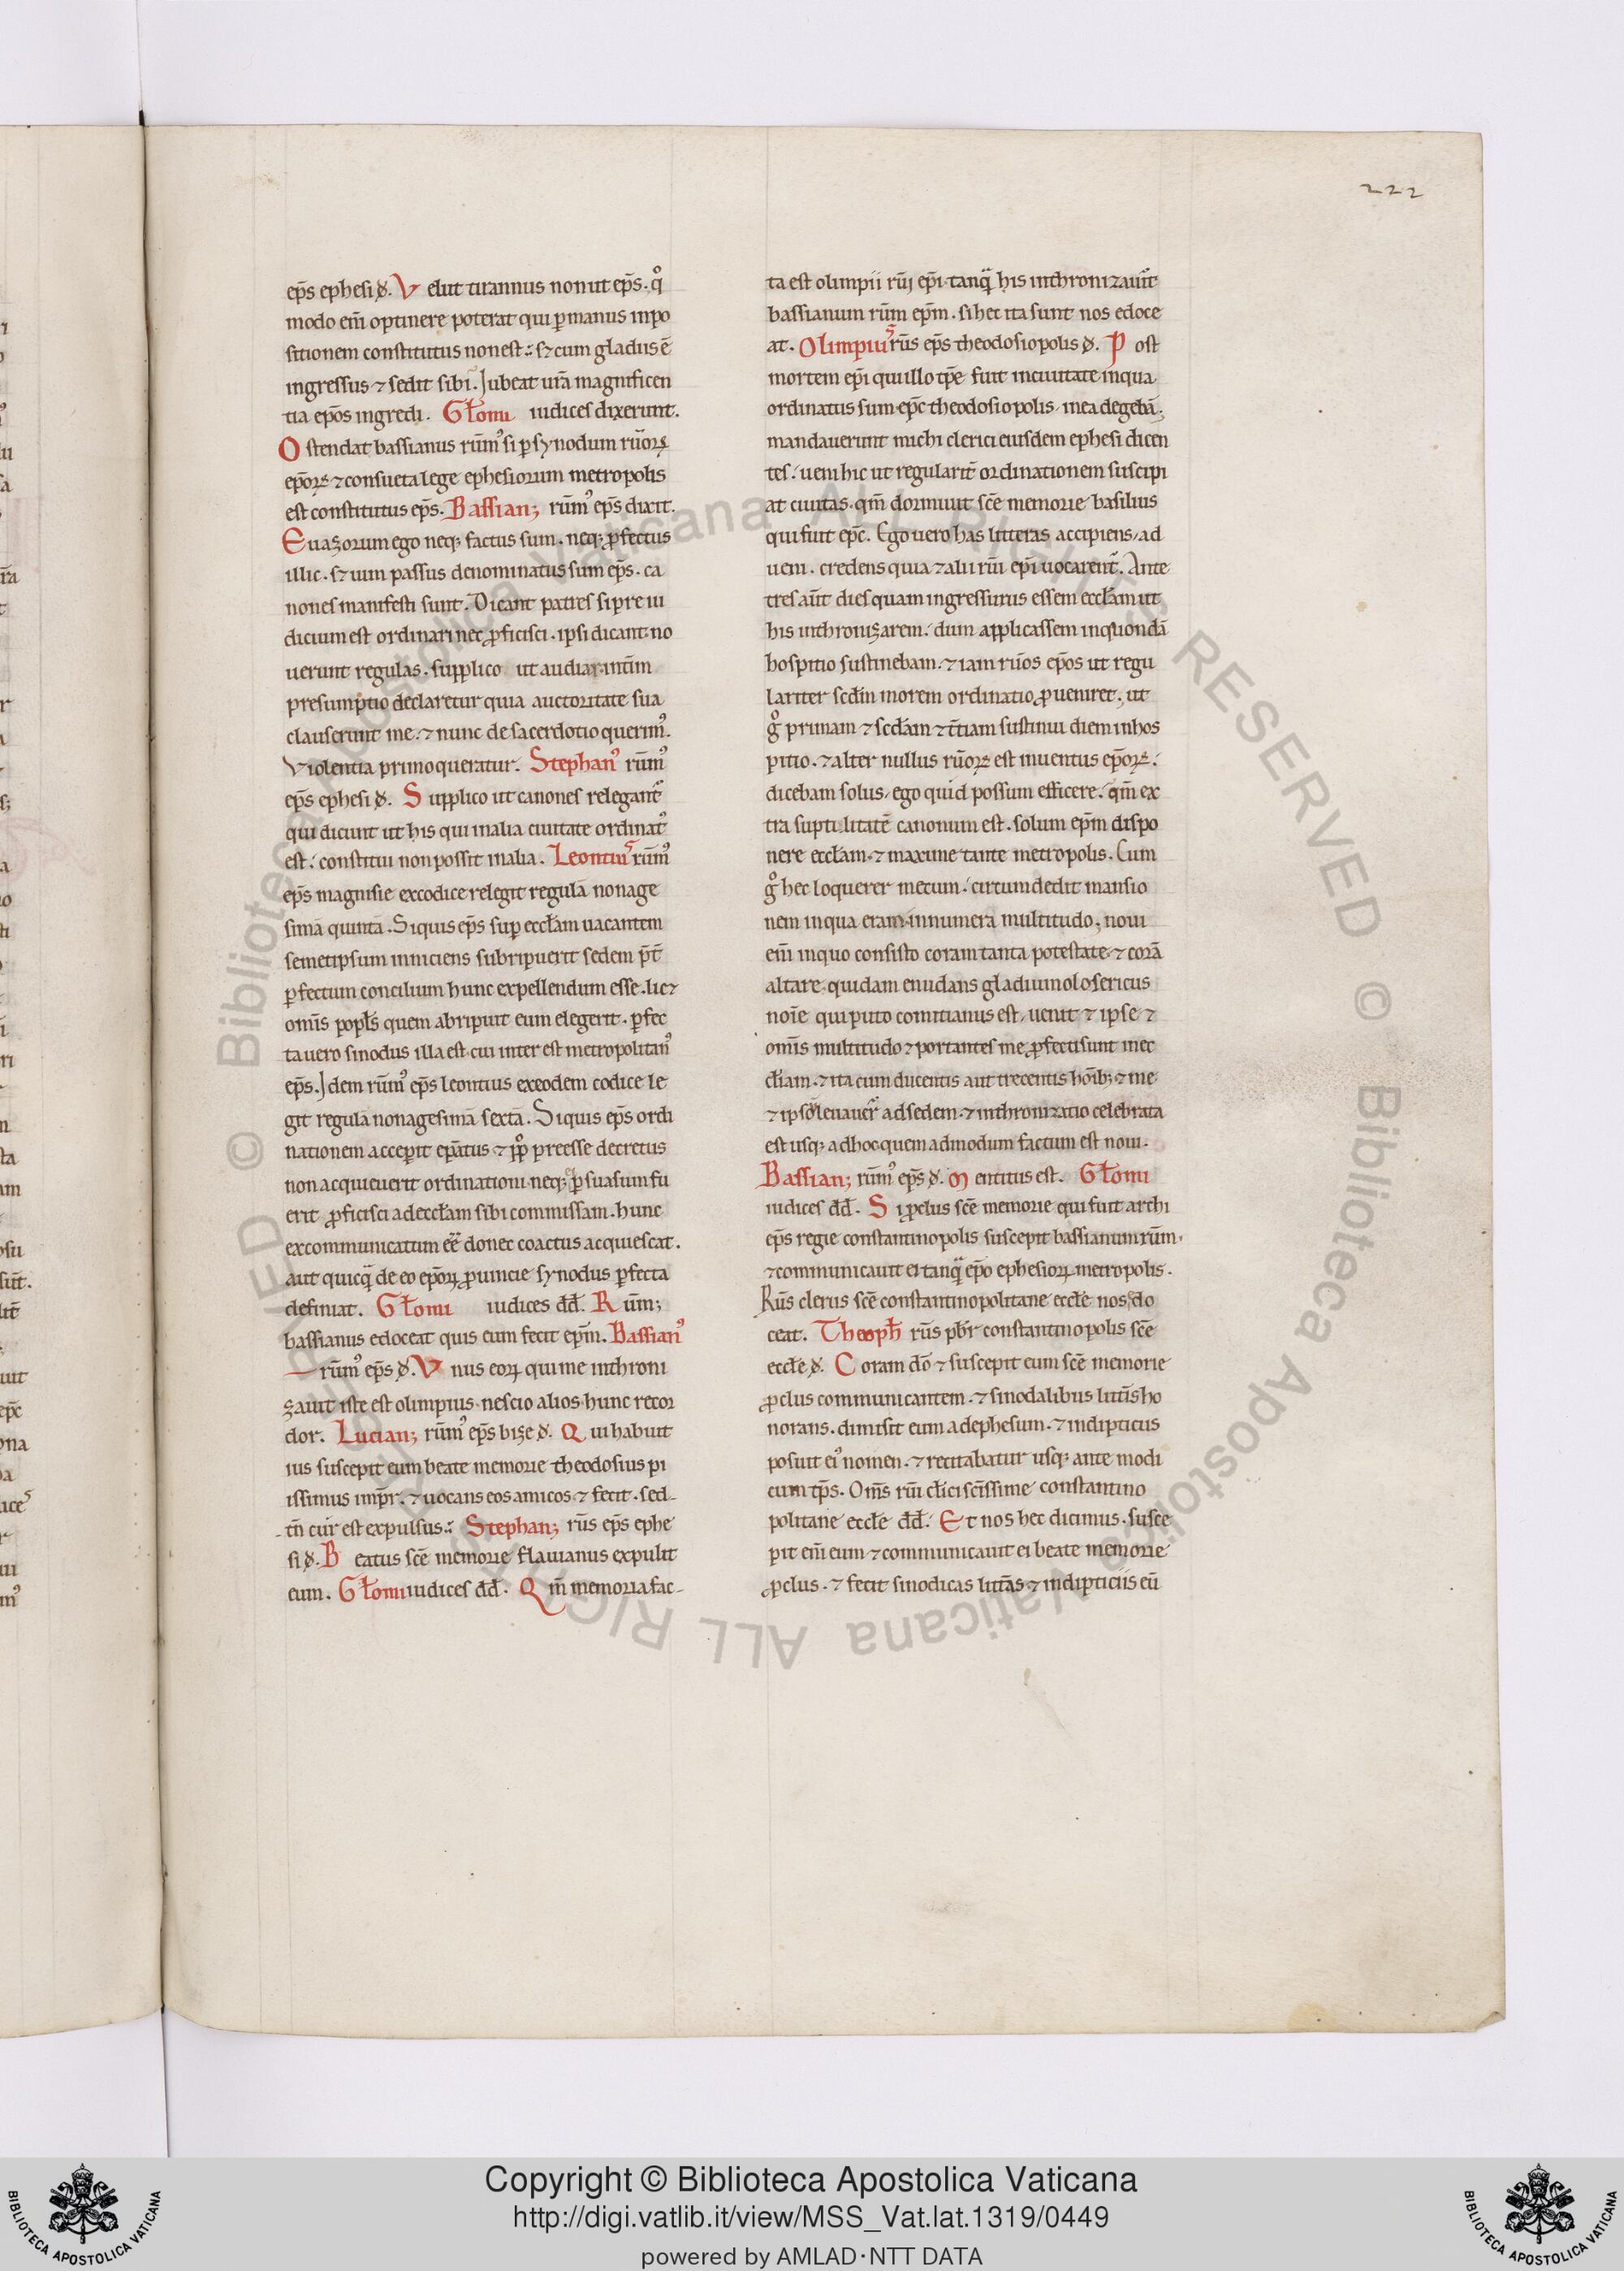 222
ep̄s ephesi d̄. V elut tirannus non ut ep̄s. qͦ
modo eni̅ optinere poterat qui ꝑ manus inpo
sitionem constitutus non est. sꝫ cum gladiis ē
ingressus ⁊ sedit sibi. Iubeat ur̄a magnificen
tia ep̄os ingredi. Gl̄omi iudices dixerunt.
O stendat bassianus rūm᷒ si ꝑ synodum rūoꝝ
ep̄oꝝ ⁊ consueta lege ephesiorum metropolis
est constitutus ep̄s. Bassian; rūm᷒ ep̄s dixit.
Euazorum ego neqꝫ factus sum. neqꝫ ꝓfectus
illic. sꝫ uim passus denominatus sum ep̄s. ca
nones manifesti sunt. Dicant patres si pre iu
dicium est ordinari nec ꝓficisci. ipsi dicant no
uerunt regulas. supplico ut audiar. int̄im
presumptio declaretur quia auctoritate sua
clauserunt me. ⁊ nunc de sacerdotio querim᷒.
Violentia primo queratur. Stephan᷒ rūm᷒
ep̄s ephesi d̄. S upplico ut canones relegant̄
qui dicunt ut his qui in alia ciuitate ordinat᷒
est. constitui non possit in alia. Leontiuˢ rūm᷒
ep̄s magnisie ex codice relegit regulā nonage
simā quintā. Siquis ep̄s sup eccl̄am uacantem
semetipsum iniciens subripuerit sedem p̄t̄
ꝑfectum concilium hunc expellendum esse. lic⁊
om̄is popl̄s quem abripuit eum elegerit. ꝑfec
ta uero sinodus illa est. cui inter est metropolitan᷒
ep̄s. Idem rūm᷒ ep̄s leontius ex eodem codice le
git regulā nonagesimā sextā. Siquis ep̄s ordi
nationem acceꝑit ep̄atus ⁊ pp̄ preesse decretus
non acquieuerit ordinationi. neqꝫ ꝑsuasum fu
erit ꝓficisci ad eccl̄am sibi commissam. hunc
excommunicatum eē donec coactus acquiescat.
aut quicq̄ de eo ep̄oꝝ ꝓuincie synodus ꝑfecta
definiat. Gl̄omi iudices dd̄. R ūm;
bassianus edoceat quis eum fecit ep̄m. Bassian᷒
rūm᷒ ep̄s d̄. V nus eoꝝ qui me inthroni
zauit iste est olimpius. nescio alios. hunc recor
dor. Lucian; rūm᷒ ep̄s bize d̄. Q ui habuit
ius suscepit eum beate memorie theodosius pi
issimus imp̄r. ⁊ uocans eos amicos ⁊ fecit. sed
tn̄ cur est expulsus. Stephan; rūs ep̄s ephe
si d̄. B eatus sc̄e memorie flauianus expulit
eum. Gl̄omi iudices dd̄. Q m̄ memoria fac
ta est olimpii rūi ep̄i. tanq̄ his inthronizauit̄
bassianum rūm ep̄m. si hec ita sunt nos edoce
at. Olimpiuˢ rūs ep̄s theodosiopolis d̄. P ost
mortem ep̄i qui illo tp̄e fuit in ciuitate in qua
ordinatus sum ep̄c theodosiopolis. in ea degebā.
mandauerunt michi clerici eiusdem ephesi dicen
tes. ueni hic ut regularit̄ ordinationem suscipi
at ciuitas. qm̄ dormiuit sc̄e memorie basilius
qui fuit ep̄c. Ego uero has litteras accipiens. ad
ueni. credens quia ⁊ alii rūi ep̄i uocarent̄. Ante
tres aūt dies quam ingressurus essem eccl̄am ut
his inthronizarem. dum applicassem in quondā
hospitio sustinebam. ⁊ iam rūos ep̄os ut regu
lariter scd̄m morem ordinatio ꝓueniret. ut
gͦ primam ⁊ scd̄am ⁊ t̄tiam sustinui diem in hos
pitio. ⁊ alter nullus rūoꝝ est inuentus ep̄oꝝ.
dicebam solus. ego quid possum efficere. qm̄ ex
tra suptilitatē canonum est. solum ep̄m dispo
nere eccl̄am. ⁊ maxime tante metropolis. Cum
gͦ hec loquerer mecum. circumdedit mansio
nem in qua eram. innumera multitudo. noui
eni̅ in quo consisto coram tanta potestate. ⁊ corā
altare. quidam enudans gladium olosericus
noīe qui puto comitianus est. uenit ⁊ ipse ⁊
om̄is multitudo ⁊ portantes me ꝓfecti sunt in ec
cl̄iam. ⁊ ita cum ducentis aut trecentis hoībꝫ ⁊ me
⁊ ipsū leuauer̄ ad sedem. ⁊ inthronizatio celebrata
est usqꝫ adhoc quemadmodum factum est noui.
Bassian; rūm᷒ ep̄s d̄. M entitus est. Gl̄omi
iudices dd̄. S i ꝓclus sc̄e memorie qui fuit archi
ep̄s regie constantinopolis suscepit bassianum rūm.
⁊ communicauit ei tanq̄ ep̄o ephesioꝝ metropolis.
Rūs clerus sc̄e constantinopolitane eccl̄e nos do
ceat. Theoph̄ rūs pb̄r constantinopolis sc̄e
eccl̄e d̄. C oram dō ⁊ suscepit eum sc̄e memorie
ꝓclus communicantem. ⁊ sinodalibus litt̄is ho
norans. dimisit eum ad ephesum. ⁊ in dipticis
posuit ei᷒ nomen. ⁊ recitabatur usqꝫ ante modi
cum tp̄s. Om̄s rūi cl̄ici sc̄issime constantino
politane eccl̄e dd̄. E t nos hec dicimus. susce
pit eni̅ eum ⁊ communicauit ei beate memorie
ꝓclus. ⁊ fecit sinodicas litt̄as ⁊ in dipticiis eū
Copyright © Biblioteca Apostolica Vaticana
http://digi.vatlib.it/view/MSS_Vat.lat.1319/0449
powered by AMLAD·NTT DATA
BIBLIOTECA APOSTOLICA VATICANA
BIBLIOTECA APOSTOLICA VATICANA
© Biblioteca Apostolica Vaticana ALL RIGHTS RESERVED © Biblioteca Apostolica Vaticana ALL RIGHTS RESERVED